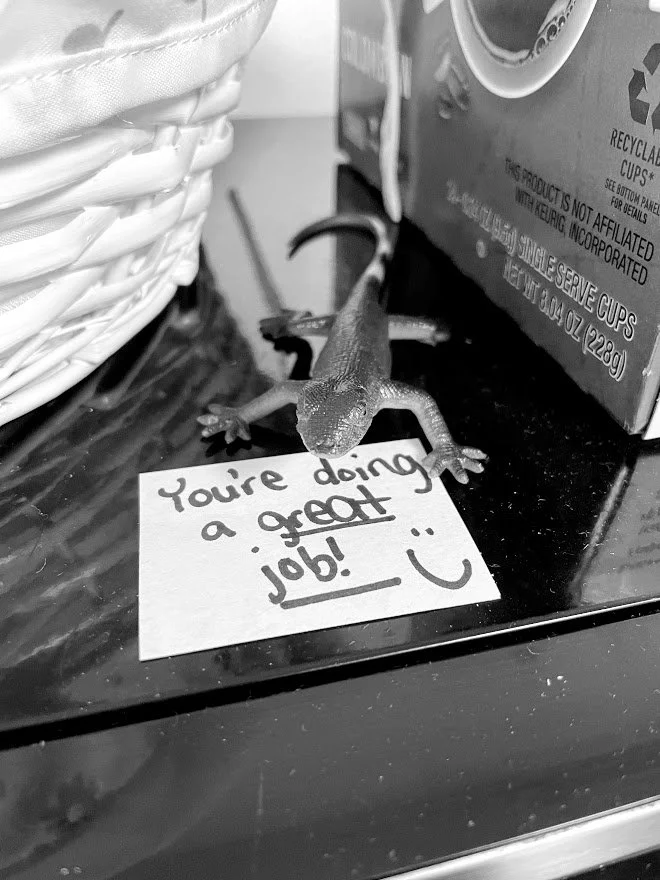 RECYCLABLE
CUPS*
SEE BOTTOM PANEL
FOR DETAILS
THIS PRODUCT IS NOT AFFILIATED
WITH KEURIG, INCORPORATED
SINGLE SERVE CUPS
NET WT 8.04 OZ (228g)
You're doing
a great
job!